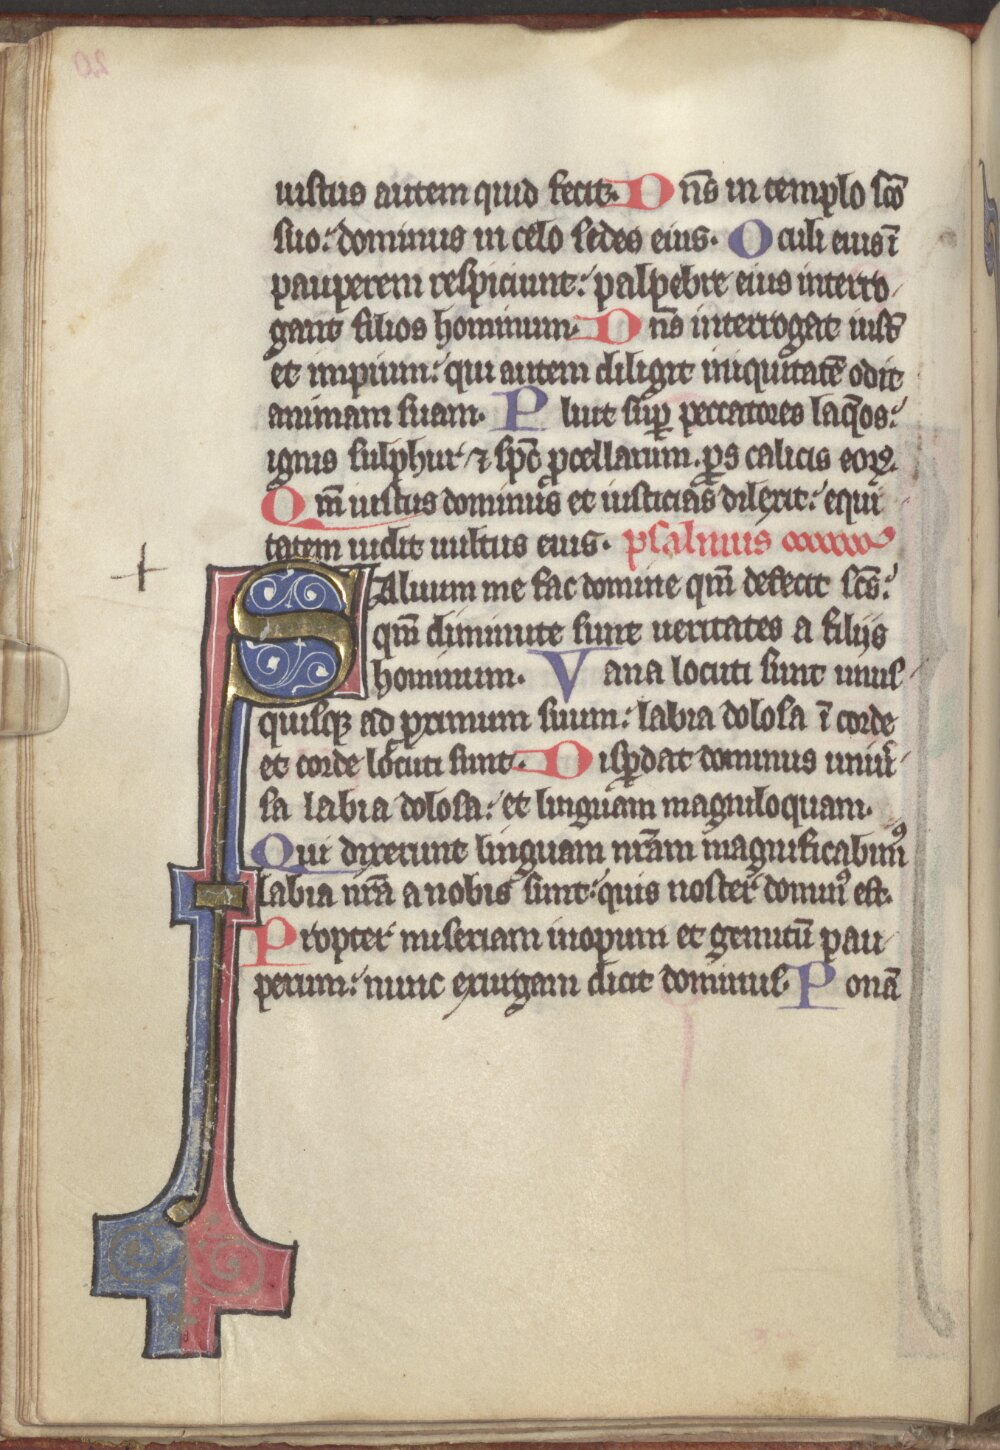 iustus autem quid fecit. Dn̄s in templo sc̄o
suo: dominus in celo sedes eius. Oculi eius ī
pauperem respiciunt: palpebre eius interro
gant filios hominum. Dn̄s interrogat iust̄
et impium: qui autem diligit iniquitatē odit
animam suam. Pluit sup̄ peccatores laq̄os:
ignis sulphur ⁊ sp̄c ꝓcellarum. ꝑs calicis eoꝝ.
Qm̄ iustus dominus et iusticias dilexit: equi
tatem uidit uultus eius. psalmus
Saluum me fac domine qm̄ defecit sc̄s:
qm̄ diminute sunt ueritates a filijs
hominum. Vana locuti sunt unus
quisqꝫ ad ꝓximum suum: labia dolosa ī corde
et corde locuti sunt. Disꝑdat dominus uniuer̄
sa labia dolosa: et linguam magniloquam.
Qui dixerunt linguam nr̄am magnificabimꝰ
labia nr̄a a nobis sunt: quis noster dominꝰ est.
Propter miseriam inopum et gemitū pau
perum: nunc exurgam dicit dominus. Ponā